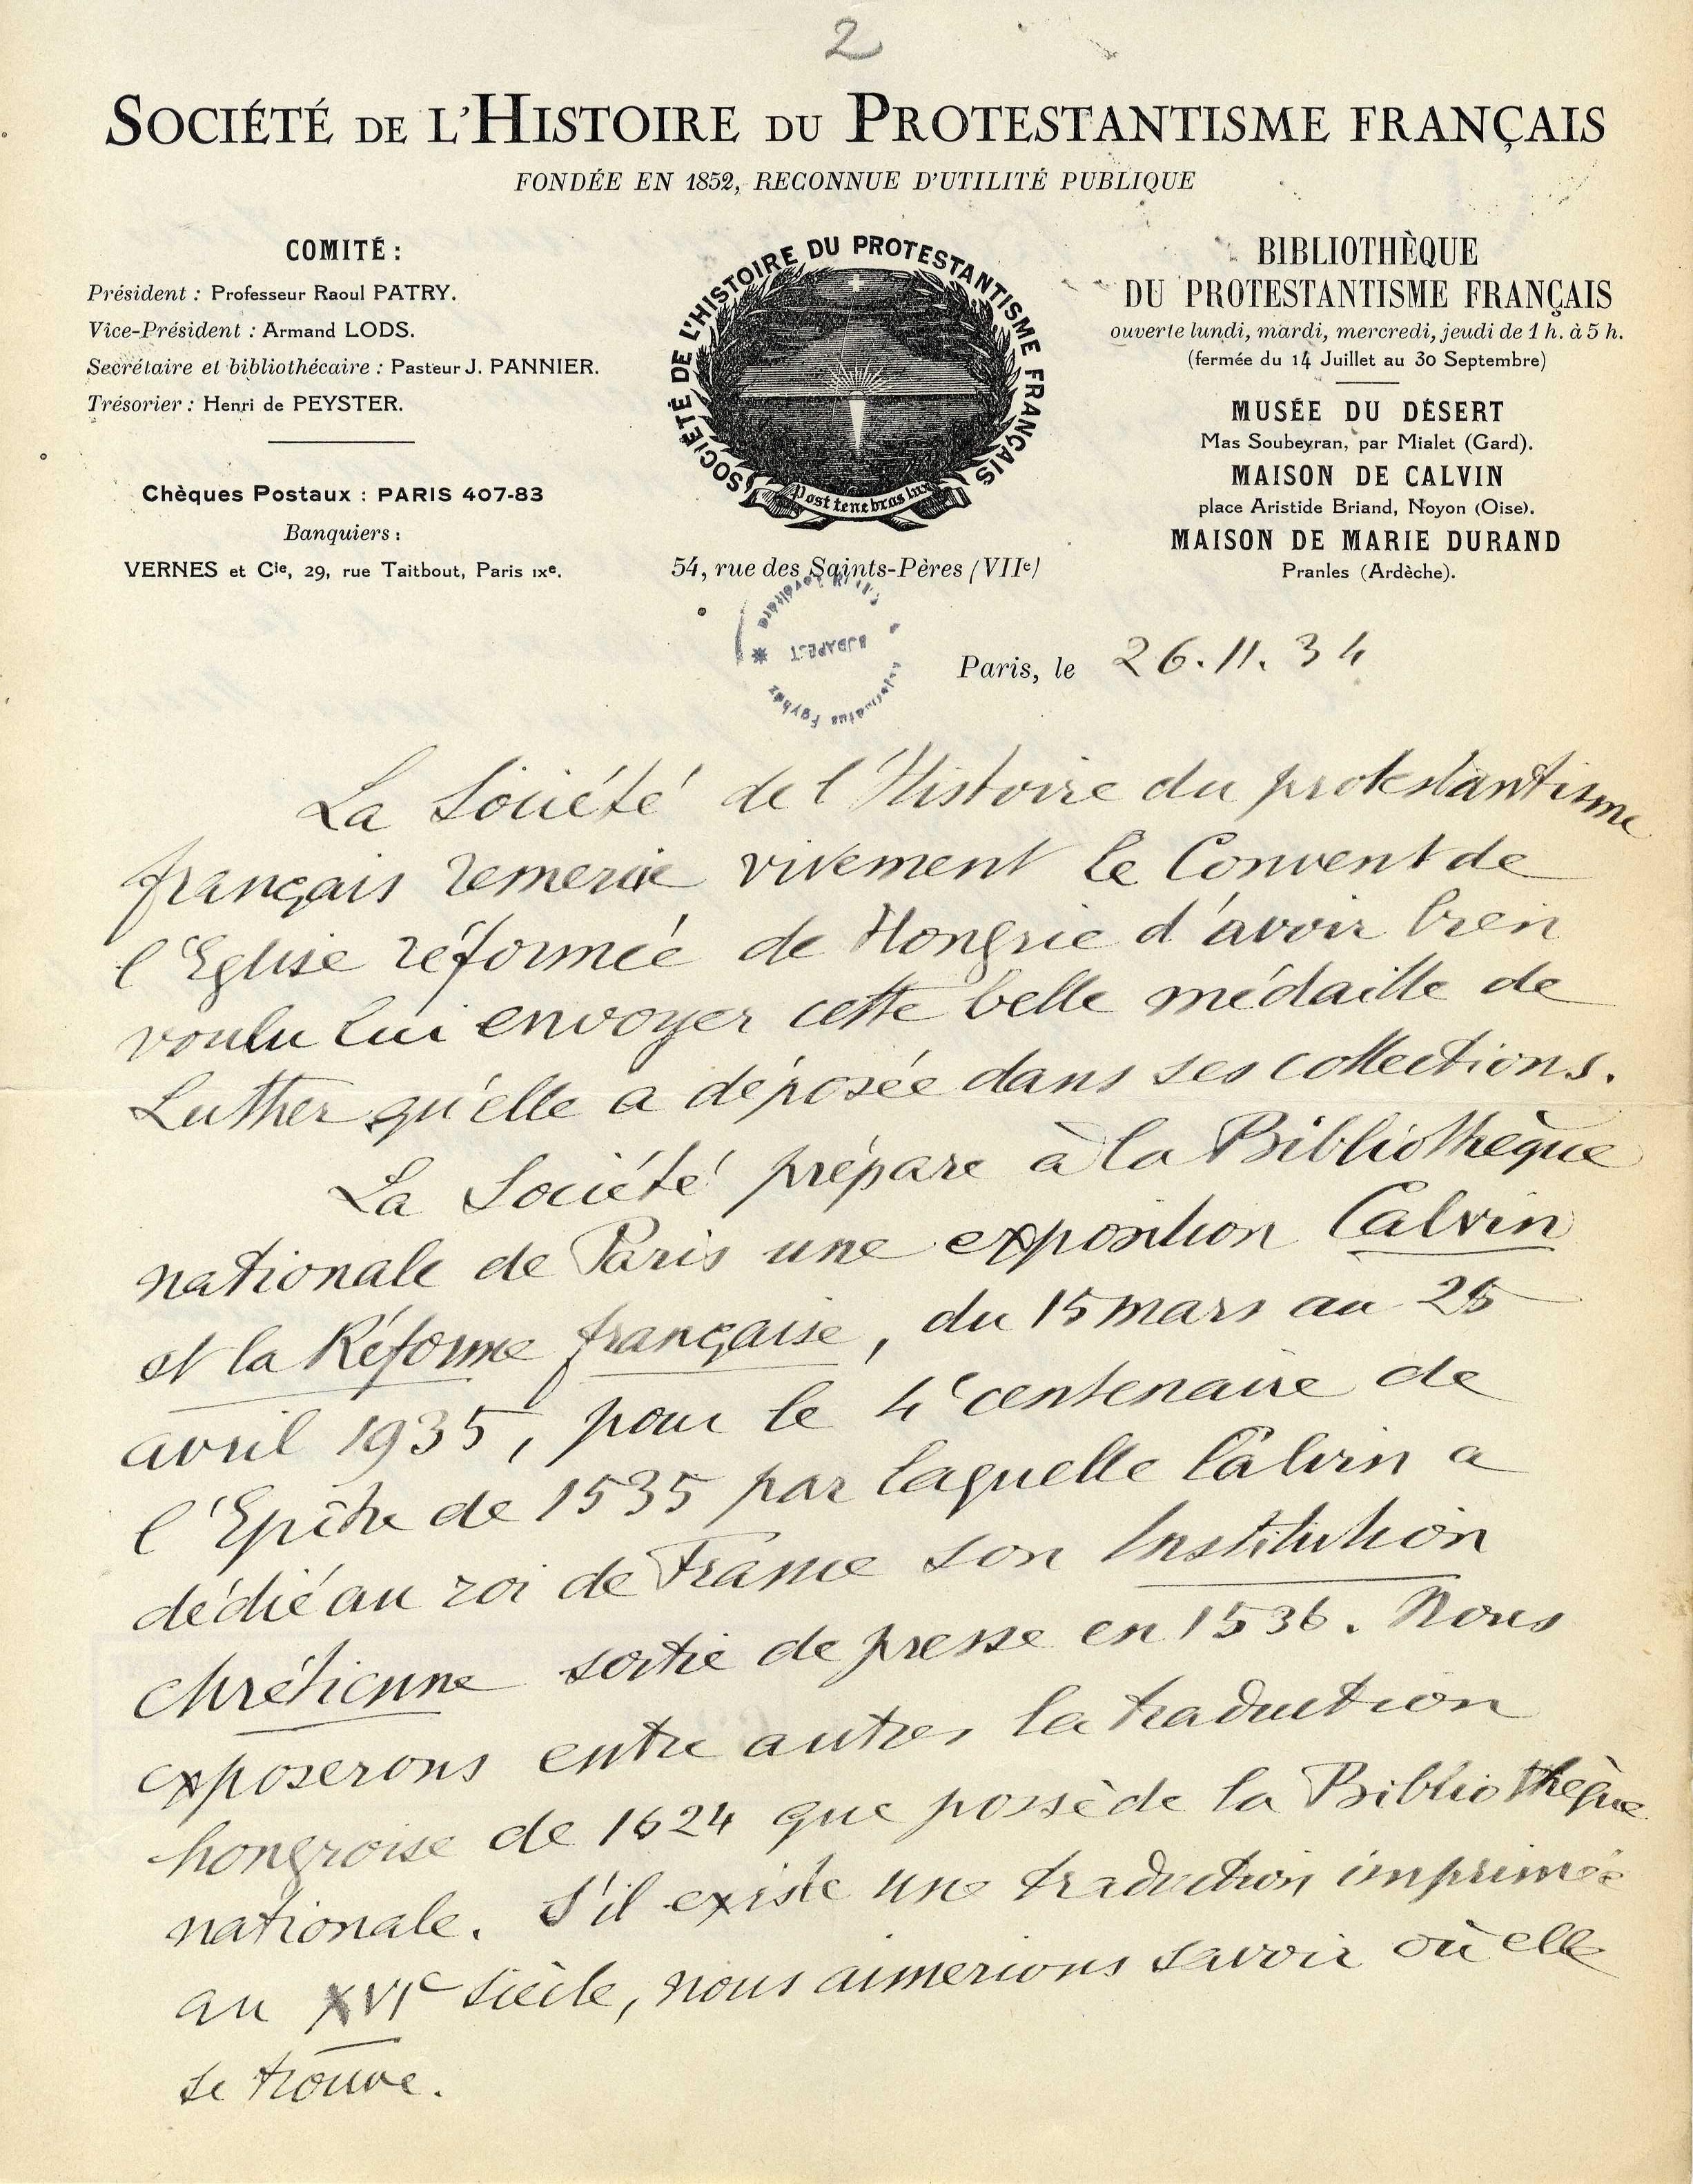 2
SOCIÉTÉ DE L'HISTOIRE DU PROTESTANTISME FRANÇAIS
FONDÉE EN 1852, RECONNUE D'UTILITÉ PUBLIQUE
COMITÉ :
Président : Professeur Raoul PATRY.
Vice-Président : Armand LODS.
Secrétaire et bibliothécaire : Pasteur J. PANNIER.
Trésorier : Henri de PEYSTER.
Chèques Postaux : PARIS 407-83
Banquiers :
VERNES et Cie, 29, rue Taitbout, Paris IXe.
SOCIÉTÉ DE L'HISTOIRE DU PROTESTANTISME FRANÇAIS
Post tenebras lux
54, rue des Saints-Pères (VIIe)
BIBLIOTHÈQUE
DU PROTESTANTISME FRANÇAIS
ouverte lundi, mardi, mercredi, jeudi de 1 h. à 5 h.
(fermée du 14 Juillet au 30 Septembre)
MUSÉE DU DÉSERT
Mas Soubeyran, par Mialet (Gard).
MAISON DE CALVIN
place Aristide Briand, Noyon (Oise).
MAISON DE MARIE DURAND
Pranles (Ardèche).
BUDAPEST
Paris, le 26.11.34
La Société de l'Histoire du protestantisme
français remercie vivement le Convent de
l'Eglise réformée de Hongrie d'avoir bien
voulu lui envoyer cette belle médaille de
Luther qu'elle a déposée dans ses collections.
La Société prépare à la Bibliothèque
nationale de Paris une exposition Calvin
et la Réforme française, du 15 mars au 25
avril 1935, pour le 4e centenaire de
l'Epître de 1535 par laquelle Calvin a
dédié au roi de France son Institution
chrétienne sortie de presse en 1536. Nous
exposerons entre autres la traduction
hongroise de 1624 que possède la Bibliothèque
nationale. S'il existe une traduction imprimée
au XVIe siècle, nous aimerions savoir où elle
se trouve.